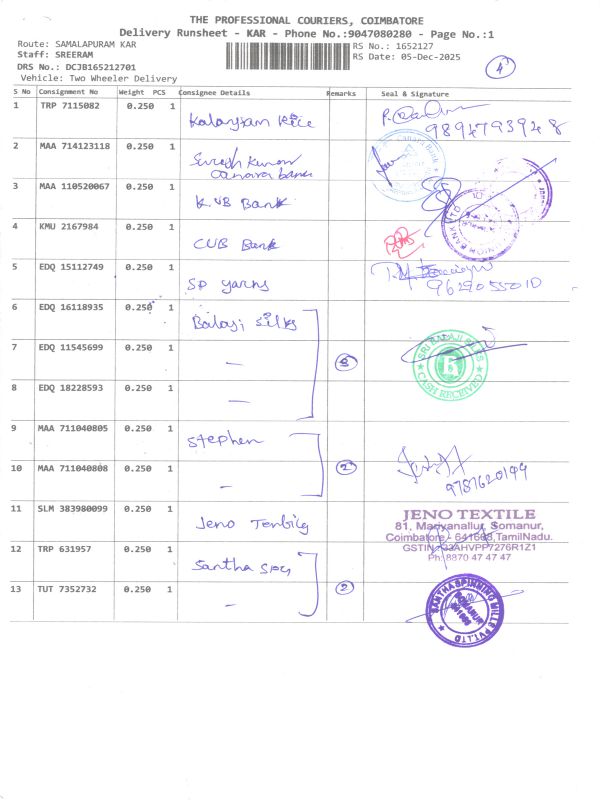 THE PROFESSIONAL COURIERS, COIMBATORE
Delivery Runsheet - KAR - Phone No.:9047080280 - Page No.:1
Route: SAMALAPURAM KAR
RS No.: 1652127
Staff: SREERAM
RS Date: 05-Dec-2025
DRS No.: DCJB165212701
Vehicle: Two Wheeler Delivery
4
S No Consignment No Weight PCS Consignee Details Remarks Seal & Signature
1 TRP 7115082 0.250 1 Rice
9894793948
2 MAA 714123118 0.250 1 Suresh Kumar
Canara bank
Canara Bank
3 MAA 110520067 0.250 1 K.VB Bank
4 KMU 2167984 0.250 1 CUB Bank
5 EDQ 15112749 0.250 1 SP yarns
9629055010
6 EDQ 16118935 0.250 1 Balaji Silks
7 EDQ 11545699 0.250 1 — 3
SRI BALAJI SILKS
CASH RECEIVED
8 EDQ 18228593 0.250 1 —
9 MAA 711040805 0.250 1 Stephen
10 MAA 711040808 0.250 1 — 2
9787620199
11 SLM 383980099 0.250 1 Jeno
JENO TEXTILE
81, Mariyanallur, Somanur,
Coimbatore - 641668, TamilNadu.
GSTIN: 33AHVPP7276R1Z1
Ph: 8870 47 47 47
12 TRP 631957 0.250 1 Santha
13 TUT 7352732 0.250 1 — 2
SANTHA SPINNING MILLS PVT.LTD
SOMANUR
641668